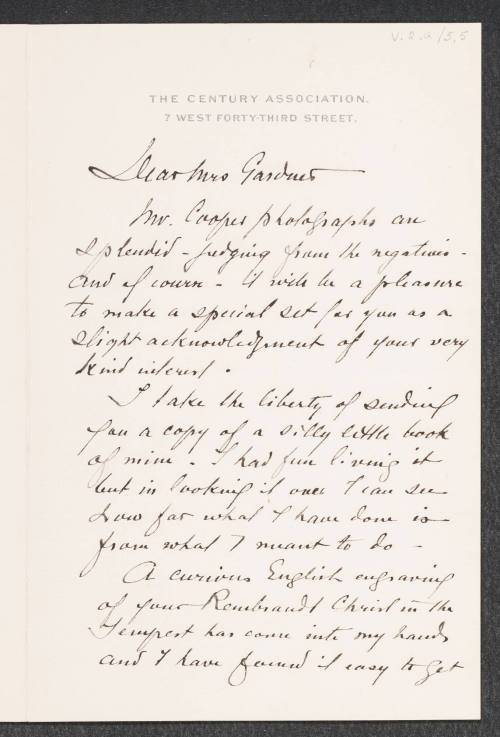 V. 2. a/5.5
THE CENTURY ASSOCIATION.
7 WEST FORTY-THIRD STREET.
Dear Mrs Gardner
Mr. Cooper photographs are
splendid - judging from the negatives -
and of course - it will be a pleasure
to make a special set for you as a
slight acknowledgment of your very
kind interest.
I take the liberty of sending
you a copy of a silly little book
of mine. I had fun living it
but in looking it over I can see
how far what I have done is
from what I meant to do -
A curious English engraving
of your Rembrandt Christ in the
Tempest has come into my hands
and I have found it easy to get